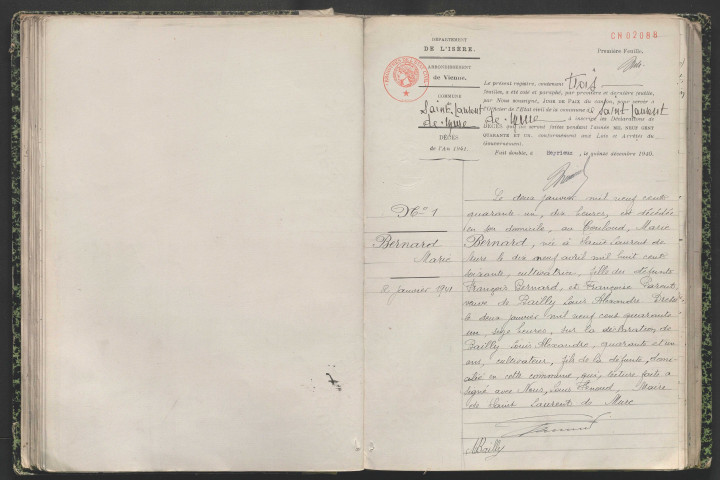 DÉPARTEMENT
DE L'ISÈRE.
ARRONDISSEMENT
de Vienne.
COMMUNE
Saint-Laurent
de-Mure
DÉCÈS
de l'An 1941.
CH02088
Première Feuille.
Le present registre, contenant trois
feuillets, a été coté et paraphé, par première et dernière feuille,
par Nous soussigné, JUGE DE PAIX du canton, pour servir à
l'Officier de l'Etat civil de la commune de Saint-Laurent
de-Mure à inscrire les Déclarations de
DÉCÈS, qui lui seront faites pendant l'année MIL NEUF CENT
QUARANTE ET UN, conformément aux Lois et Arrêtés du
Gouvernement.
Fait double, à Heyrieux, le quinze décembre 1940.
No 1
Bernard
Marie
2 Janvier 1941
Le deux janvier mil neuf cent
quarante un, dix heures, est décédée
en son domicile, au Marie
Bernard, née à Saint Laurent de
Mure le dix neuf avril mil huit cent
soixante, cultivatrice, fille des défunts
François Bernard, et Françoise Parent,
veuve de Bailly Louis Alexandre Dressé
le deux janvier mil neuf cent quarante
un seize heures, sur la déclaration de
Bailly Louis Alexandre, quarante et un
ans, cultivateur, fils de la défunte, domi-
cilié en cette commune, qui, lecture faite a
signé avec Nous, Louis Maire
de Saint Laurent de Mure
MBailly